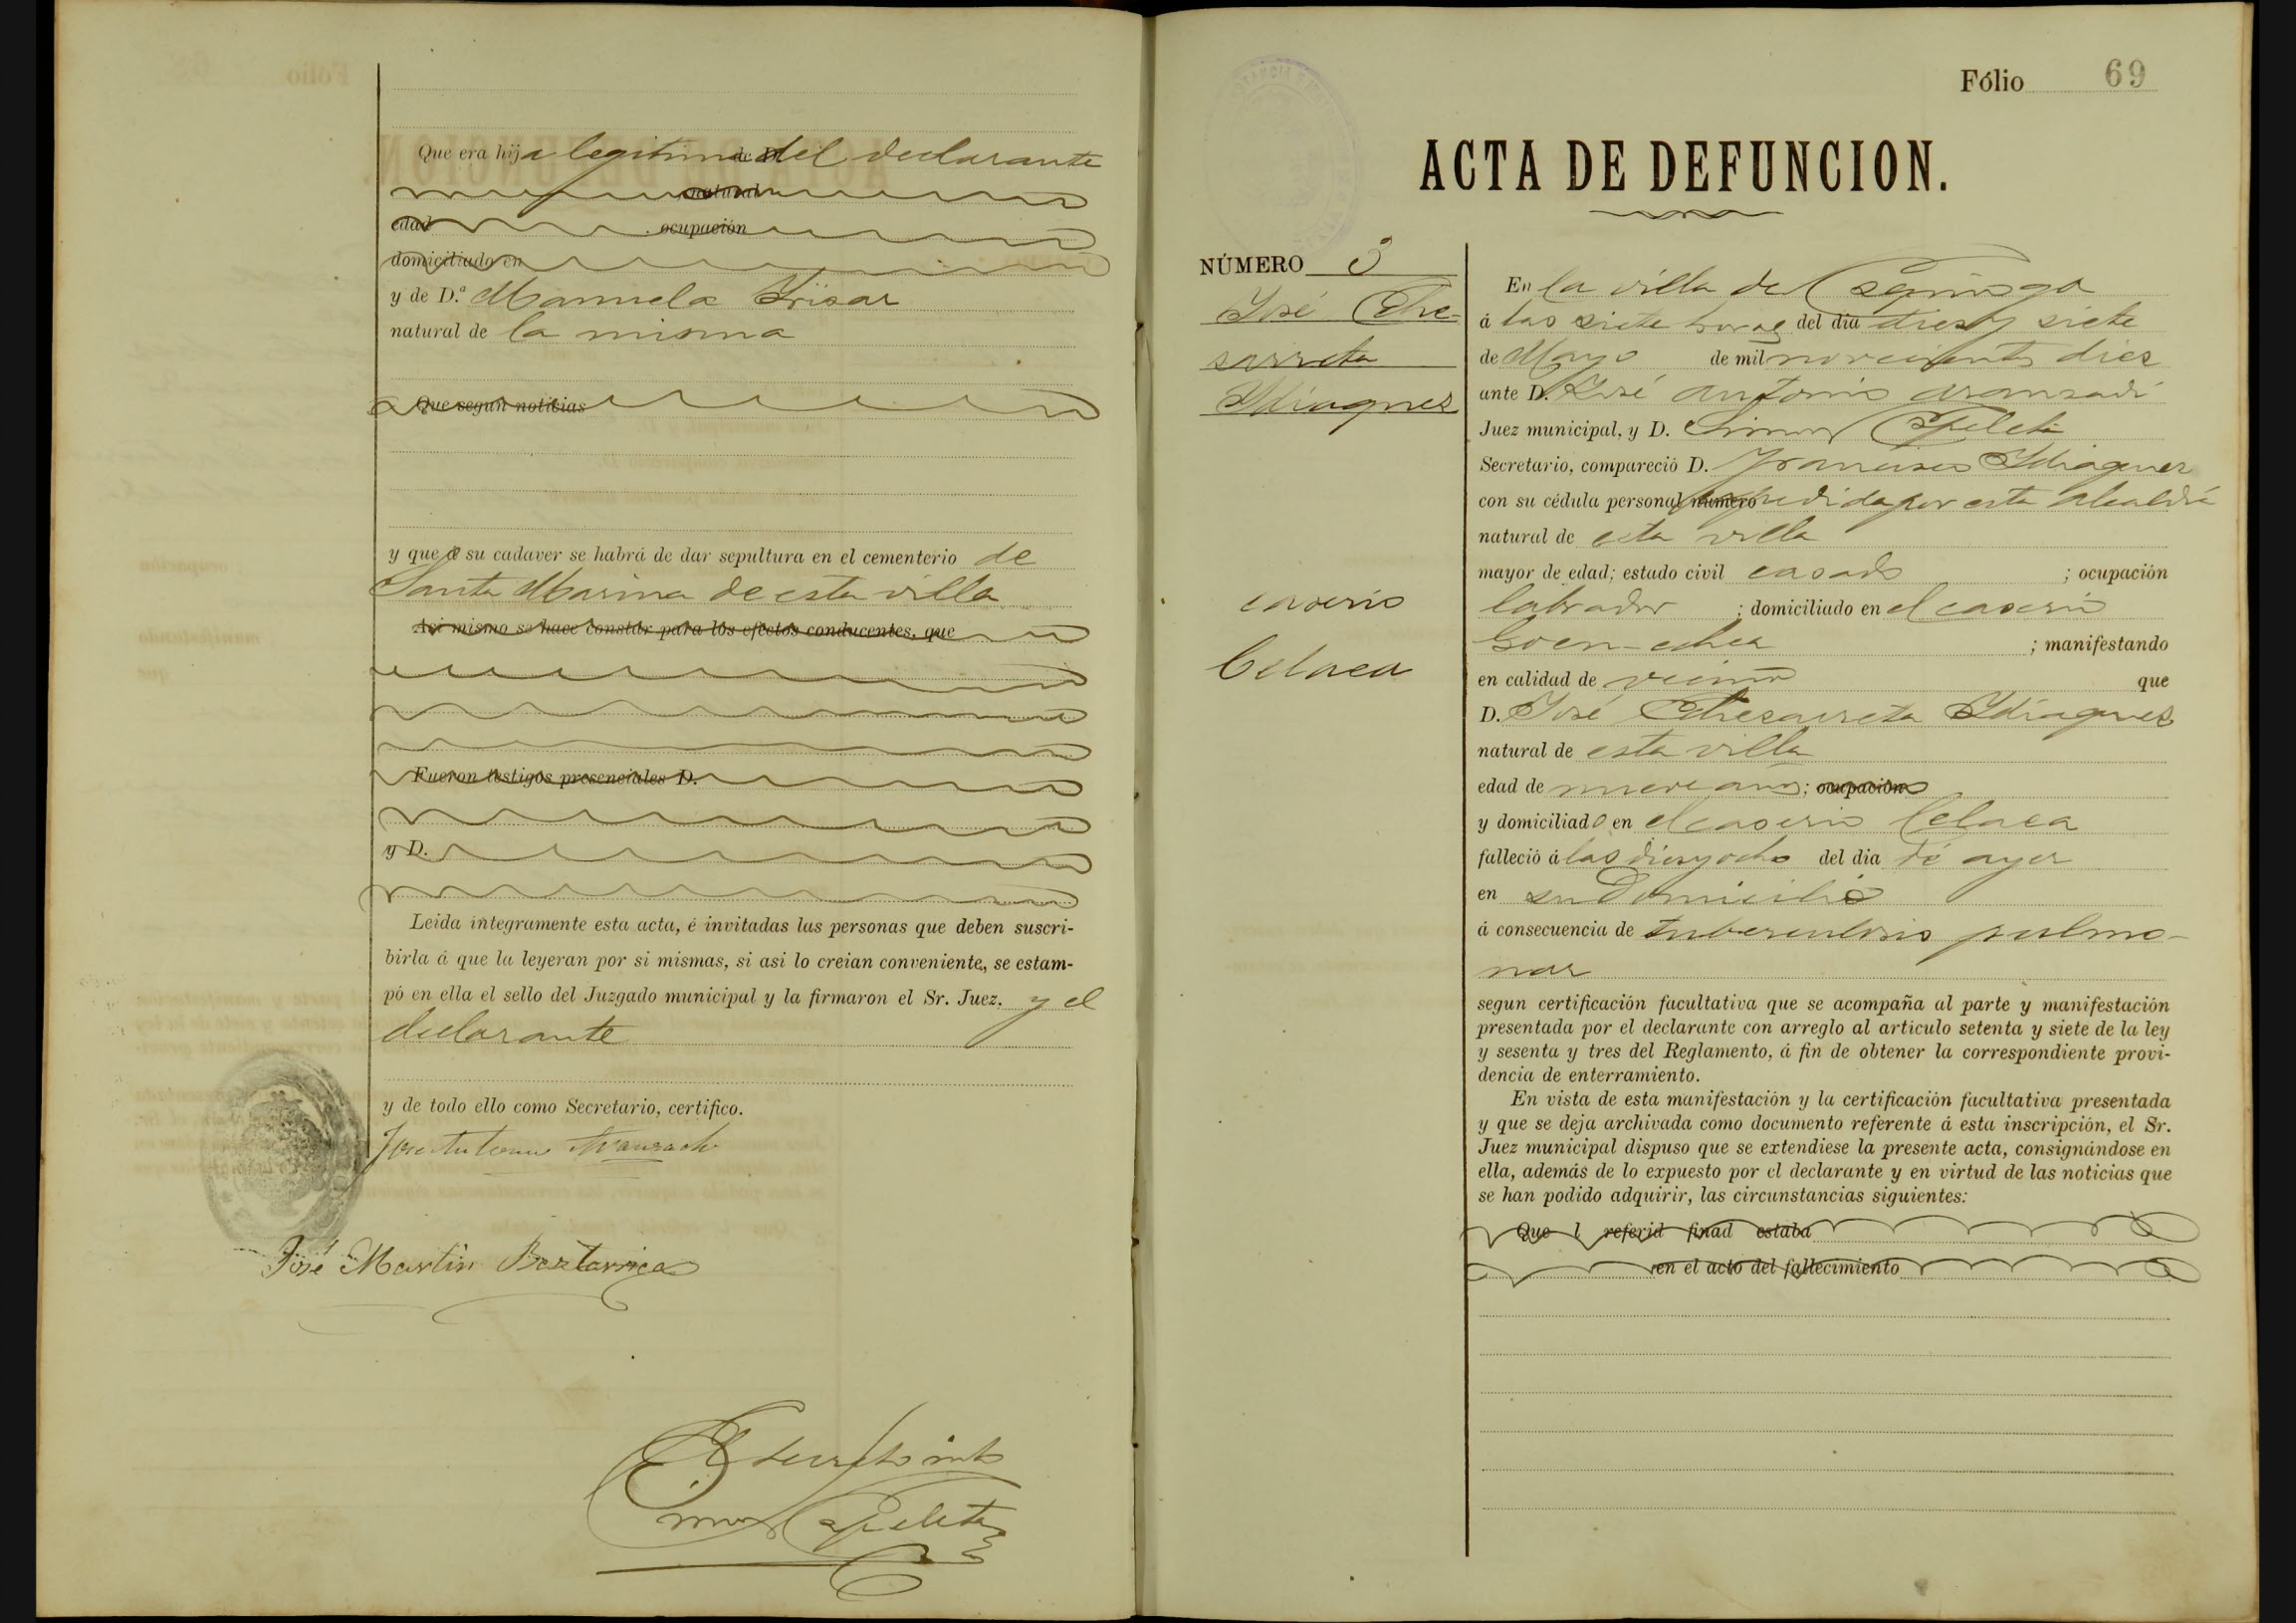 Que era hija legitima de D. del declarante
natural
edad ocupación
domiciliado en
y de D.ª Manuela Yrisar
natural de la misma
Que segun noticias
y que á su cadaver se habrá de dar sepultura en el cementerio de
Santa Marina de esta villa
Asi mismo se hace constar para los efectos conducentes, que
Fueron testigos presenciales D.
y D.
Leida integramente esta acta, é invitadas las personas que deben suscri-
birla á que la leyeran por si mismas, si asi lo creian conveniente, se estam-
pó en ella el sello del Juzgado municipal y la firmaron el Sr. Juez. y el
declarante
y de todo ello como Secretario, certifico.
José Antonio Aranzadi
José Martin Baztarrica
Simon Apeleta
Fólio 69
ACTA DE DEFUNCION.
NÚMERO 3
José Eche-
sarreta
Ydiaquez
caserio
Celaea
En la villa de
á las siete horas del dia diez y siete
de Mayo de mil novecientos diez
ante D. José Antonio Aranzadi
Juez municipal, y D. Simon Apeleta
Secretario, compareció D. Francisco Ydiaquez
con su cédula personal numero expedida por esta Alcaldia
natural de esta villa
mayor de edad; estado civil casado ; ocupación
labrador ; domiciliado en el caserio
Goen-echea ; manifestando
en calidad de vecino que
D. José Echesarreta Ydiaquez
natural de esta villa
edad de nueve años; ocupación
y domiciliado en el caserio Celaea
falleció á las diez y ocho del dia de ayer
en su domicilio
á consecuencia de tuberculosis pulmo-
nar
segun certificación facultativa que se acompaña al parte y manifestación
presentada por el declarante con arreglo al articulo setenta y siete de la ley
y sesenta y tres del Reglamento, á fin de obtener la correspondiente provi-
dencia de enterramiento.
En vista de esta manifestación y la certificación facultativa presentada
y que se deja archivada como documento referente á esta inscripción, el Sr.
Juez municipal dispuso que se extendiese la presente acta, consignándose en
ella, además de lo expuesto por el declarante y en virtud de las noticias que
se han podido adquirir, las circunstancias siguientes:
Que l referid finad estaba
en el acto del fallecimiento